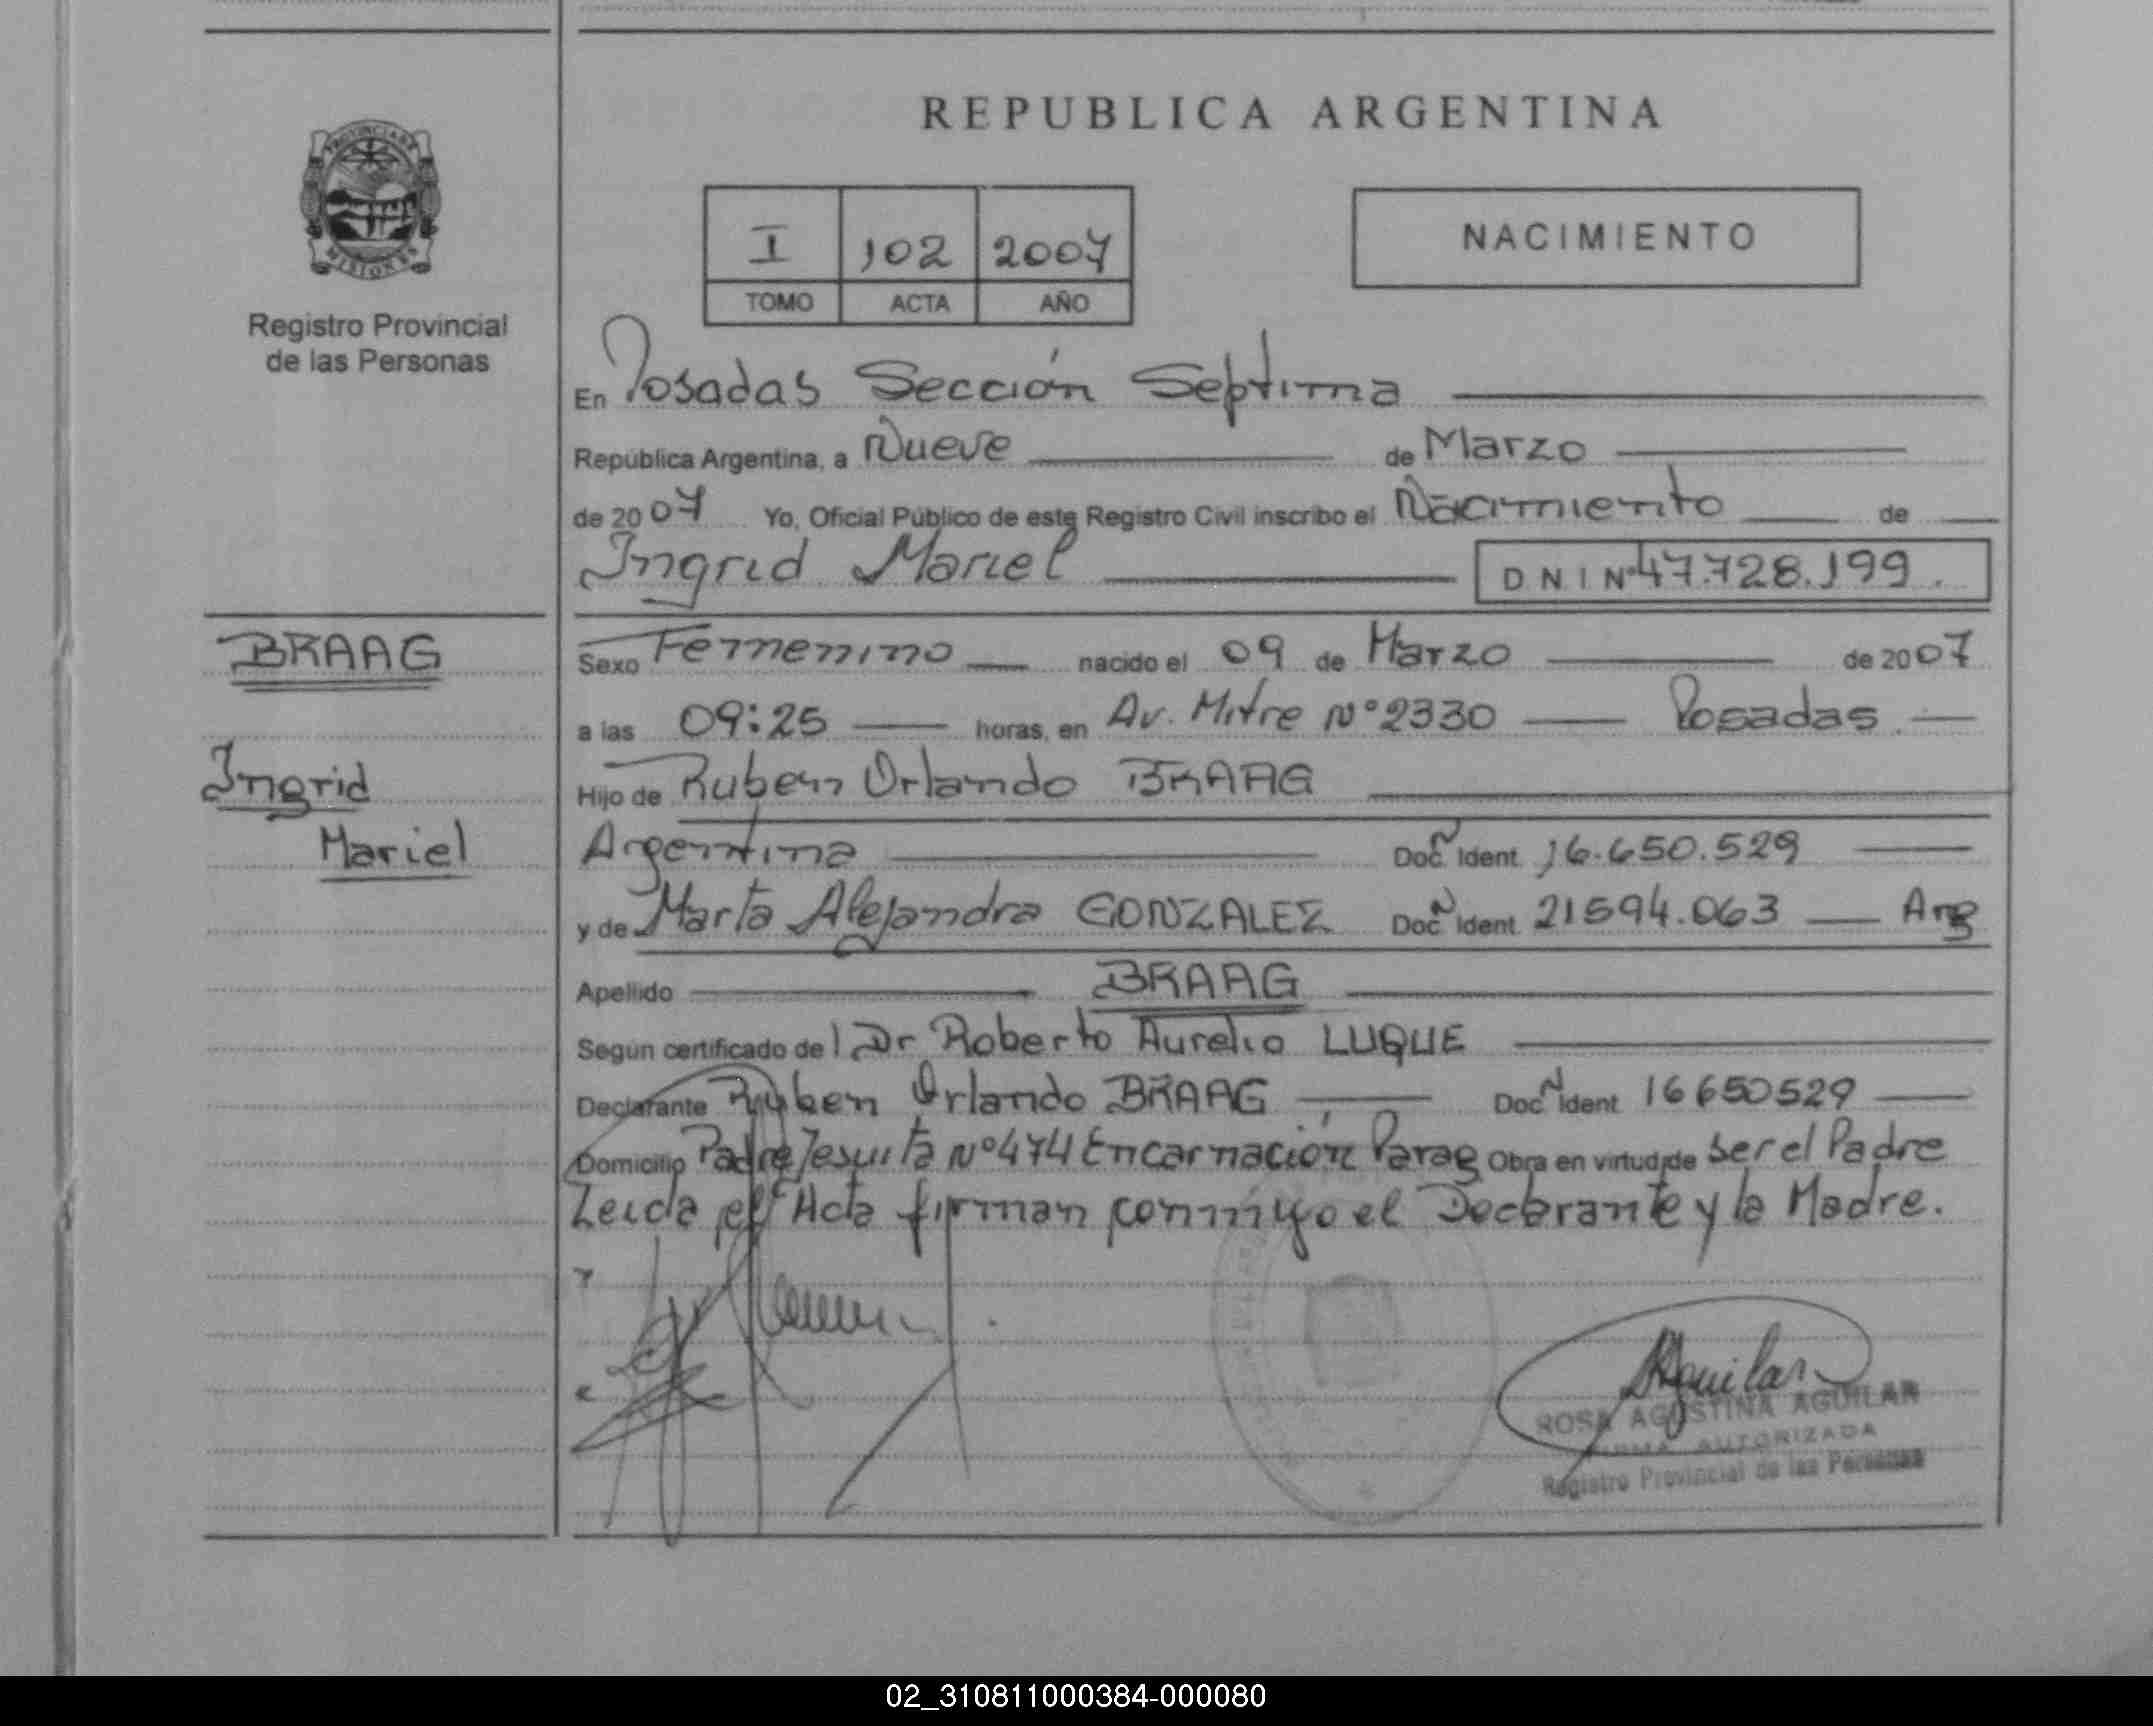 REPUBLICA ARGENTINA
PROVINCIA DE
MISIONES
Registro Provincial
de las Personas
I 102 2007
TOMO ACTA AÑO
NACIMIENTO
En Posadas Sección Septima
República Argentina, a Nueve de Marzo
de 2007 Yo, Oficial Público de este Registro Civil inscribo el Nacimiento de
Ingrid Mariel DNI Nº 47.728.199.
BRAAG
Ingrid
Mariel
Sexo Femenino nacido el 09 de Marzo de 2007
a las 09:25 horas, en Av. Mitre Nº 2330 Posadas.
Hijo de Ruben Orlando BRAAG
Argentina Doc. Ident. 16.650.529
y de Marta Alejandra GONZALEZ Doc. Ident. 21594.063 Arg
Apellido BRAAG
Según certificado del Dr Roberto Aurelio LUQUE
Declarante Ruben Orlando BRAAG Doc. Ident. 16650529
Domicilio Padre Jesuita Nº 474 Encarnación Parag Obra en virtud de ser el Padre
Leida el Acta firman conmigo el Declarante y la Madre.
Aguilar
ROSA AGUSTINA AGUILAR
FIRMA AUTORIZADA
Registro Provincial de las Personas
02_310811000384-000080